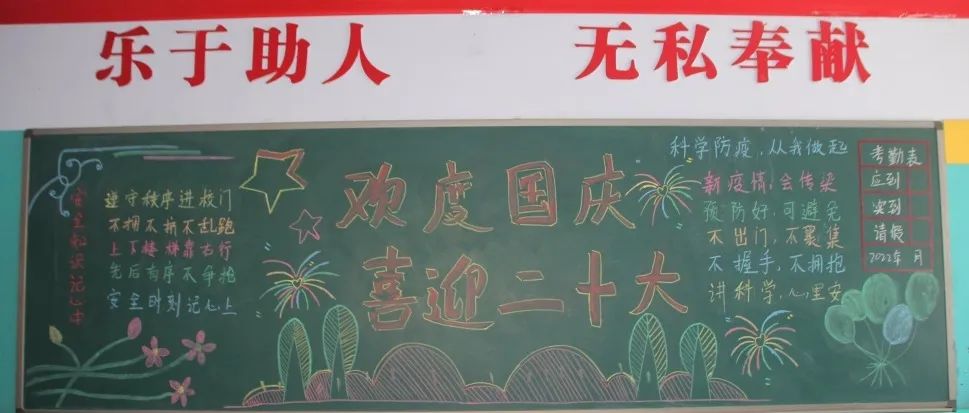 乐于助人 无私奉献
安全知识记心中
遵守秩序进校门
不拥不挤不乱跑
上下楼梯靠右行
先后有序不争抢
安全时刻记心上
欢度国庆
喜迎二十大
科学防疫，从我做起
新疫情，会传染
预防好，可避免
不出门，不聚集
不握手，不拥抱
讲科学，心里安
考勤表
应到
实到
请假
2022年 月